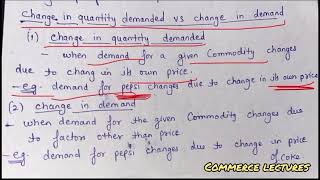 change in quantity demanded vs change in demand
(1) change in quantity demanded
- when demand for a given Commodity changes
due to chang in its own price.
- eg. demand for pepsi changes due to change in its own price
(2) change in demand
- when demand for the given Commodity changes due
to factors other than price
- eg. demand for pepsi changes due to change in price
of coke
COMMERCE LECTURES